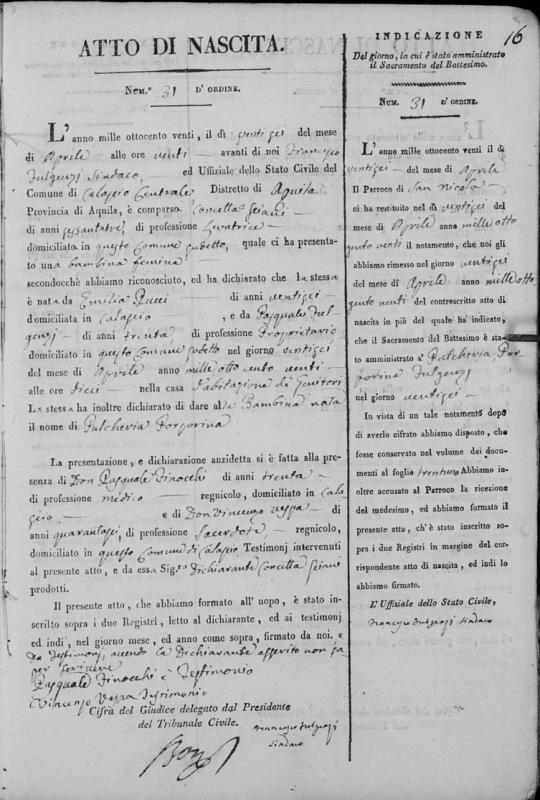 16
ATTO DI NASCITA.
NUM.° 31 D'ORDINE.
L'anno mille ottocento venti, il dì ventisei del mese
di Aprile alle ore venti avanti di noi Francesco
Fulgenzj Sindaco, ed Uffiziale dello Stato Civile del
Comune di Calascio Centrale Distretto di Aquila
Provincia di Aquila, è comparsa Concetta
di anni sessantatre, di professione Levatrice
domiciliata in questo Comune sudetto, quale ci ha presenta-
to una bambina femina
secondocchè abbiamo riconosciuto, ed ha dichiarato che la stessa
è nata da Emilia Pucci di anni ventisei
domiciliata in Calascio, e da Pasquale Ful-
genzj di anni trenta di professione Proprietario
domiciliato in questo Comune sudetto nel giorno ventisei
del mese di Aprile anno mille otto cento venti
alle ore dieci nella casa d'abitazione dì Genitori
La stessa ha inoltre dichiarato di dare alla Bambina nata
il nome di Pulcheria Porporina
La presentazione, e dichiarazione anzidetta si è fatta alla pre-
senza di Don Pasquale Finocchi di anni trenta
di professione medico regnicolo, domiciliato in Cala
scio e di Don Vincenzo Vespa di
anni quarantasei, di professione Sacerdote regnicolo,
domiciliato in questo Comune di Calascio Testimonj intervenuti
al presente atto, e da essa Sig.ª Dichiarante Concetta
prodotti.
Il presente atto, che abbiamo formato all'uopo, è stato in-
scritto sopra i due Registri, letto al dichiarante, ed ai testimonj
ed indi, nel giorno mese, ed anno come sopra, firmato da noi, e
da Testimonj, avendo la Dichiarante asserito non sa
per scrivere
Pasquale Finocchi è Testimonio
Vincenzo Vespa Testimonio
Cifra del Giudice delegato dal Presidente
del Tribunale Civile.
Francesco Fulgenzj
Sindaco
INDICAZIONE
Del giorno, in cui è stato amministrato
il Sacramento del Battesimo.
NUM. 31 D'ORDINE.
L'anno mille ottocento venti il dì
ventisei del mese di Aprile
Il Parroco di San Nicola
ci ha restituito nel dì ventisei del
mese di Aprile anno mille otto
cento venti il notamento, che noi gli
abbiamo rimesso nel giorno ventisei
del mese di Aprile anno mille otto
cento venti del contrescritto atto di
nascita in piè del quale ha indicato,
che il Sacramento del Battesimo è sta-
to amministrato a Pulcheria Por
porina Fulgenzj
nel giorno ventisei
In vista di un tale notamento dopo
di averlo cifrato abbiamo disposto, che
fosse conservato nel volume dei docu-
menti al foglio trentuno Abbiamo in-
oltre accusato al Parroco la ricezione
del medesimo, ed abbiamo formato il
presente atto, ch'è stato inscritto so-
pra i due Registri in margine del cor-
rispondente atto di nascita, ed indi lo
abbiamo firmato.
L'Uffiziale dello Stato Civile,
Francesco Fulgenzj Sindaco